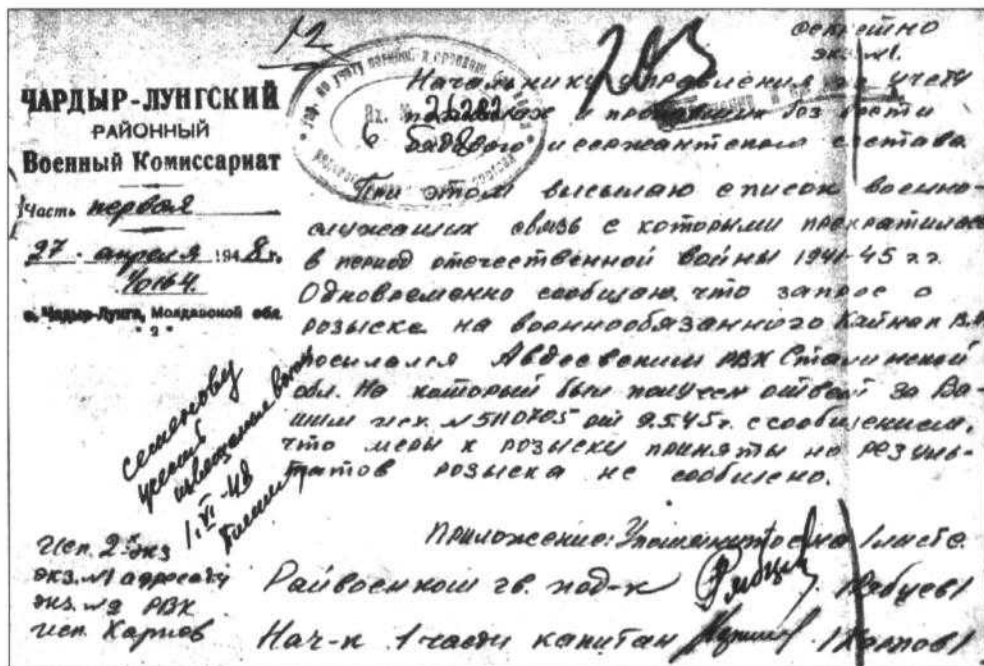 12
203
секретно
экз. №1.
ЧАРДЫР-ЛУНГСКИЙ
РАЙОННЫЙ
Военный Комиссариат
Часть первая
27 апреля 1948 г.
1/0164.
с. Чадыр-Лунга, Молдавской обл.
"2"
Вх. № 26282
Начальнику управления по учету
погибшего и пропавших без вести
рядового и сержантского состава
При этом высылаю список военно-
служащих связь с которыми прекратилась
в период отечественной войны 1941-45 г.г.
Одновременно сообщаю, что запрос о
розыске на военнообязанного Кайнак В.
посылался Авдеевским РВК Сталинской
обл. На который был получен ответ за Ва-
шим исх. № 5110705 от 9.5.45г. с сообщением,
что меры к розыску приняты но резуль-
татов розыска не сообщено.
Семенову
1.VI-48
Приложение: Упомянутое на 1 листе.
Исп. 2-экз
экз. №1 адресату
экз. №2 РВК
исп. Карпов
Райвоенком гв. под-к /Рябцев/
Нач-к 1 части капитан /Карпов/